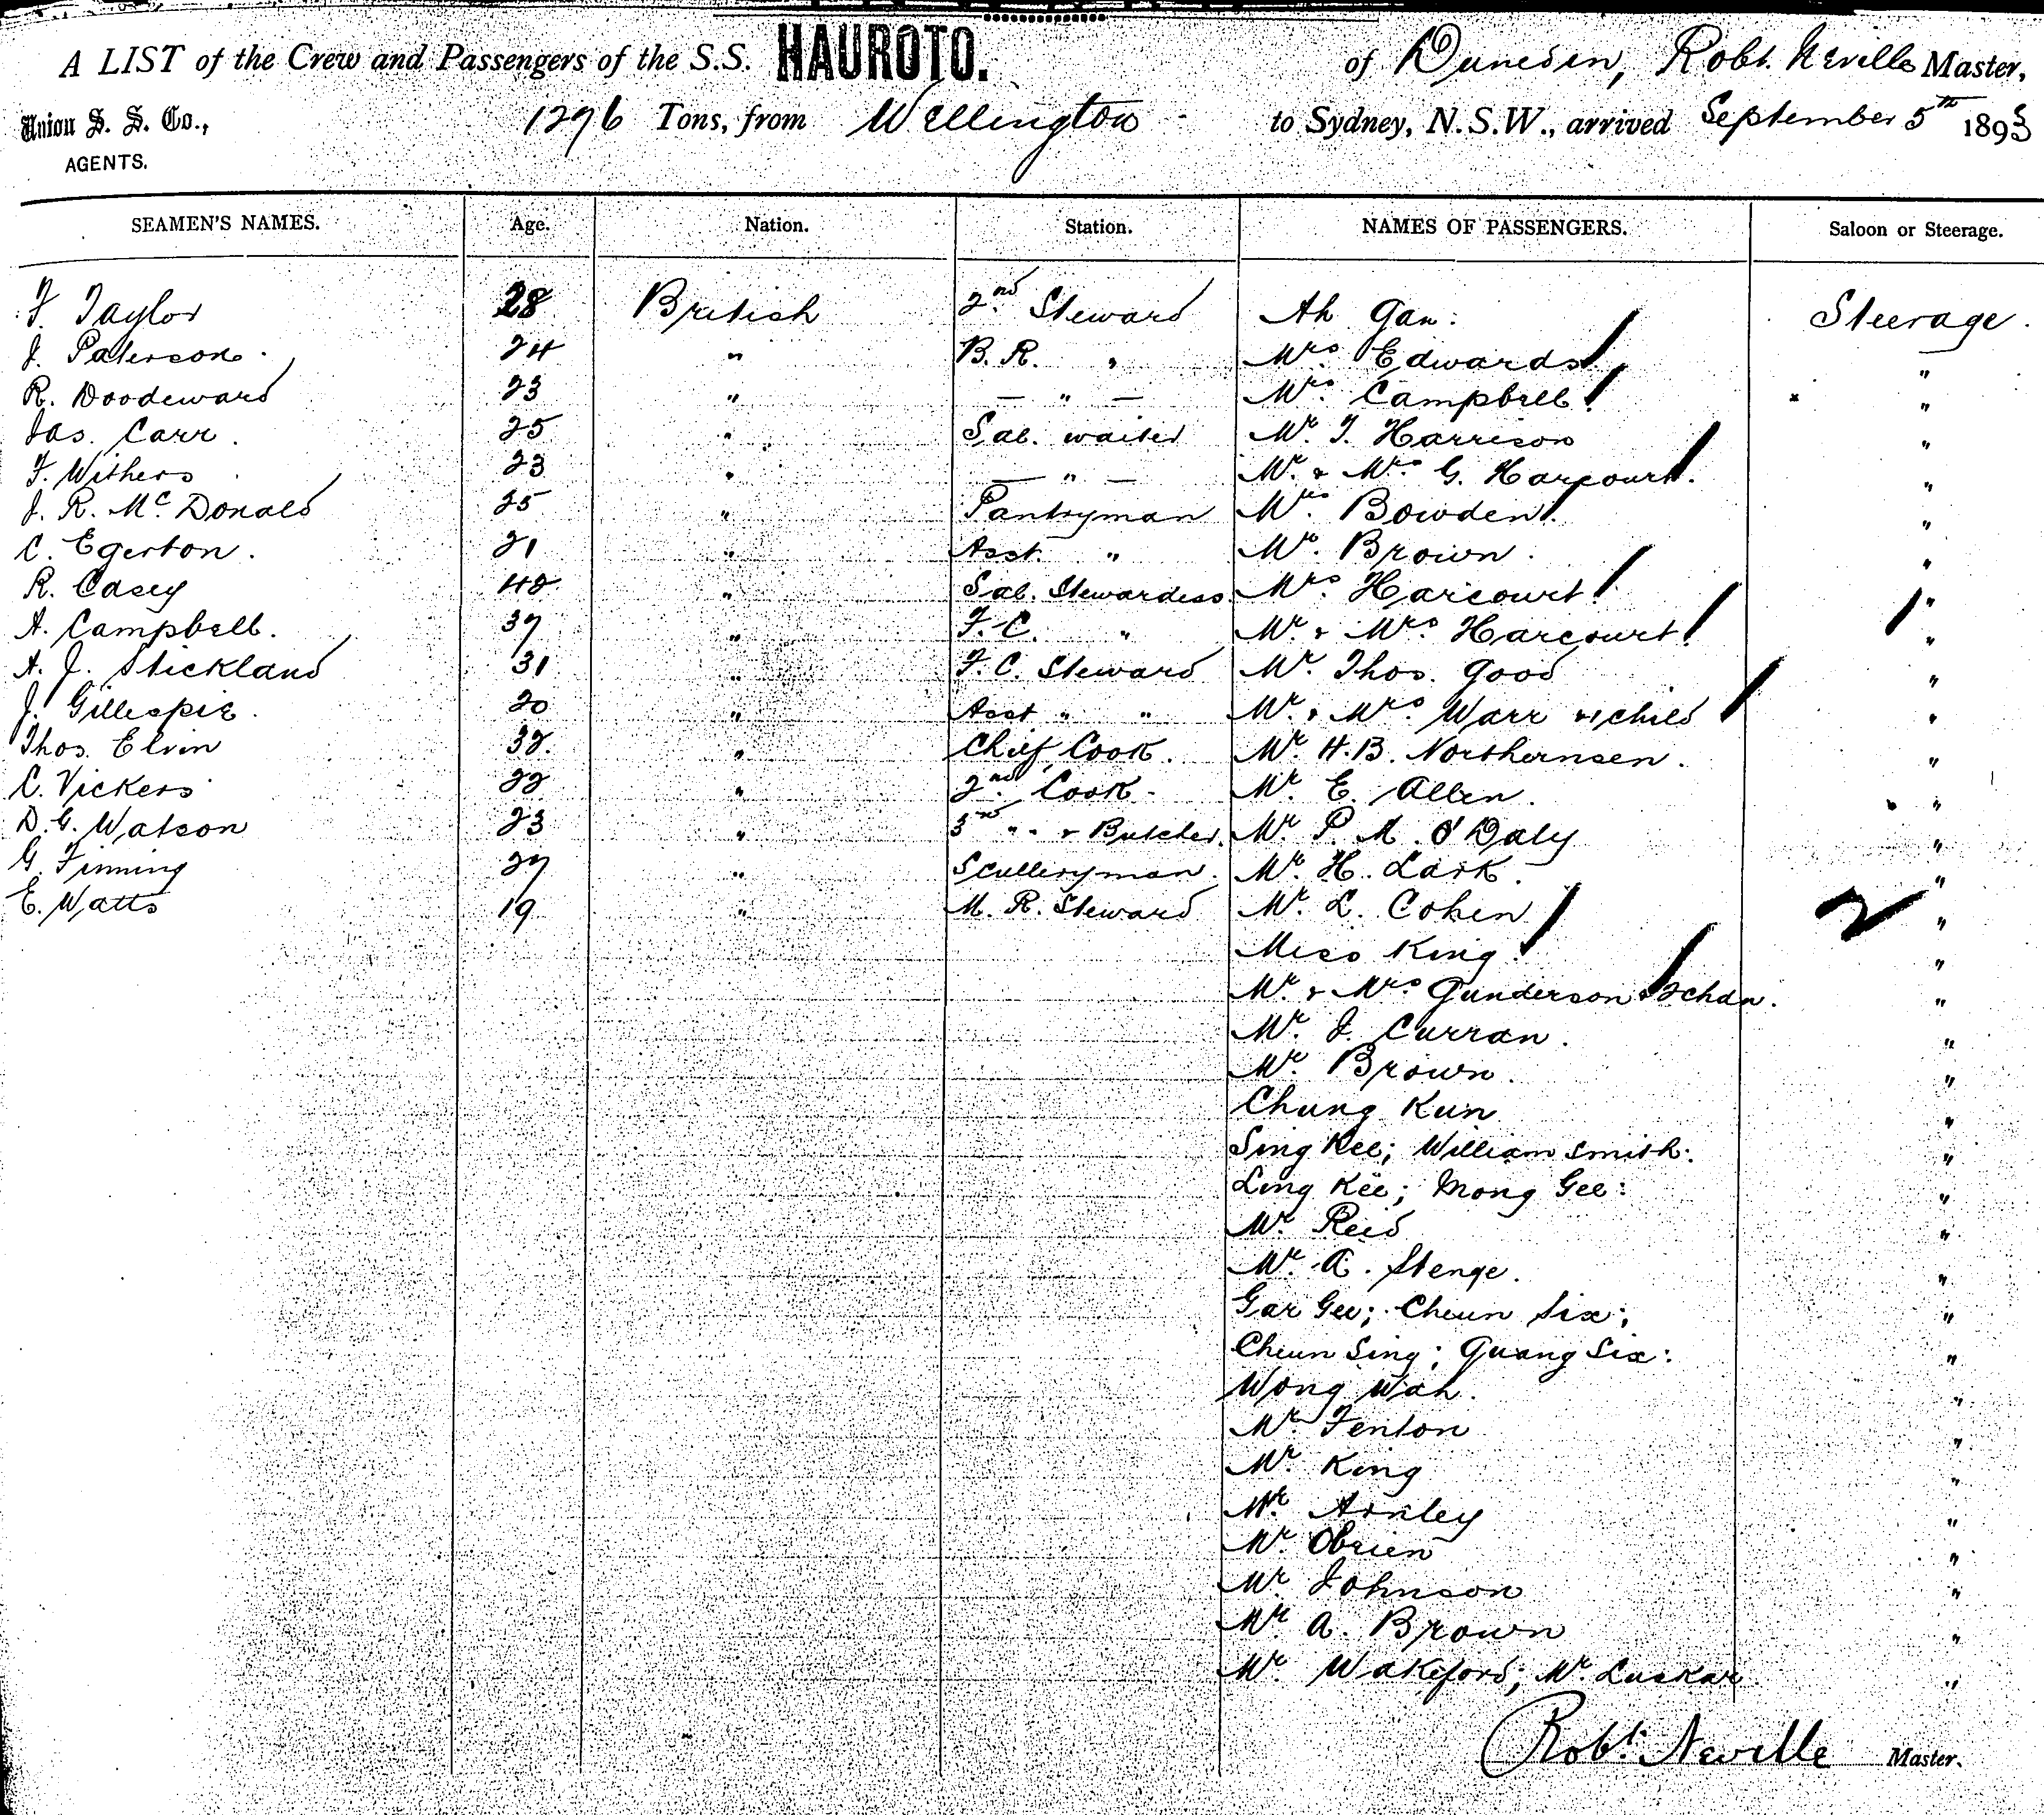 A LIST of the Crew and Passengers of the S.S. HAUROTO. of Dunedin, Robt. Neville Master,
Union S. S. Co., 1276 Tons, from Wellington to Sydney, N.S.W., arrived September 5th 1893
AGENTS.
SEAMEN'S NAMES. Age. Nation. Station. NAMES OF PASSENGERS. Saloon or Steerage.
F. Taylor 28 British 2nd Steward Ah Gan: Steerage.
J. Paterson 24 " B.R. " Mrs Edwards "
R. Woodeward 23 " — " — Mrs Campbell "
Jas. Carr. 25 " Sal. waiter Mr. T. Harrison "
F. Withers 23 " — " — Mr. & Mrs G. Harcourt. "
J. R. McDonald 25 " Pantryman Mrs. Bowden. "
C. Egerton. 21 " Asst. " Mr. Brown. "
R. Casey 42 " Sal. Stewardess Mrs Harcourt "
A. Campbell. 37 " F.C. " Mr. & Mrs. Harcourt "
A. J. Stickland 31 " F.C. Steward Mr. Thos. Good "
J. Gillespie. 20 " Asst " " Mr. & Mrs. Warr & child "
Thos. Elvin 32. " Chief Cook. Mr. H.B. Northernsen. "
C. Vickers 22 " 2nd Cook - Mr. E. Allen. "
D. G. Watson 23 " 3rd " & Butcher. Mr. P. M. O'Daly "
G. Finning 27 " Sculleryman. Mr. H. Lark. "
E. Watts 19 " M. R. Steward Mr. L. Cohen 2 "
Miss King. "
Mr. & Mrs Gunderson & 2 chdn. "
Mr. J. Curran. "
Mr. Brown. "
Chung Kun "
Sing Kee; William Smith. "
Ling Kee; Mong Gee: "
Mr. Reid "
Mr. A. Stenge. "
Gar Gee; Cheun Six; "
Cheun Sing; Quang Six: "
Wong Wah. "
Mr. Fenton "
Mr. King "
Mr. Arnley "
Mr. Obrien "
Mr. Johnson "
Mr. A. Brown "
Mr. Wakeford; Mr. Luskar "
Robt. Neville Master.